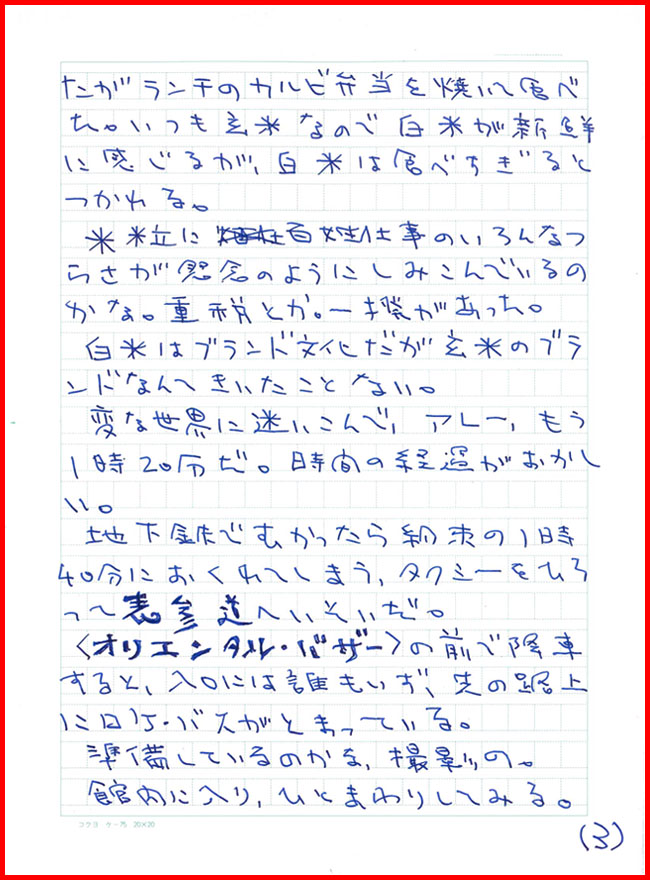 たがランチのカルビ弁当を焼いて食べ
た。いつも玄米なので白米が新鮮
に感じるが、白米は食べすぎると
つかれる。
米粒に百姓仕事のいろんなつ
らさが怨念のようにしみこんでいるの
かな。重税とか。一揆があった。
白米はブランド文化だが玄米のブラ
ンドなんてきいたことない。
変な世界に迷いこんで、アレー、もう
1時20分だ。時間の経過がおかし
い。
地下鉄でむかったら約束の1時
40分におくれてしまう、タクシーをひろ
って表参道へいそいだ。
〈オリエンタル・バザー〉の前で降車
すると、入口には誰もいず、先の路上
にロケ・バスがとまっている。
準備しているのかな、撮影の。
館内に入り、ひとまわりしてみる。
コクヨ ケ-75 20×20
(3)